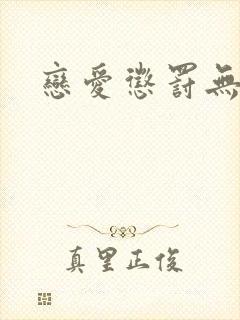 戀愛懲罰無
真里正俊